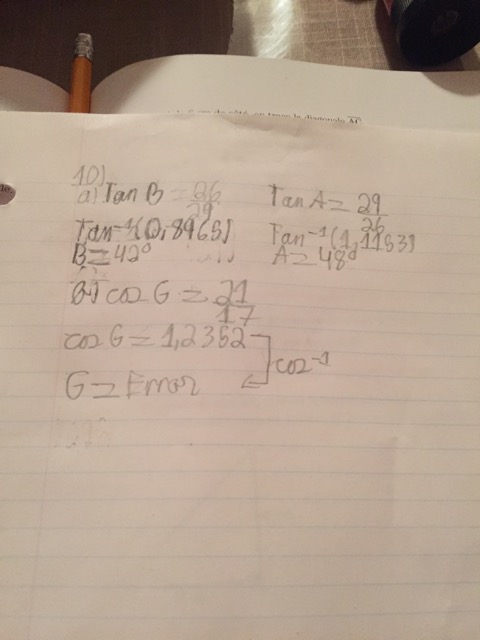 on trace la diagonale AC
10)
a) Tan B = 26/29
Tan A = 29/26
Tan⁻¹(0,8965)
Tan⁻¹(1,1153)
B = 42°
A = 48°
B) cos G = 21/17
cos G = 1,2352
cos⁻¹
G = Error